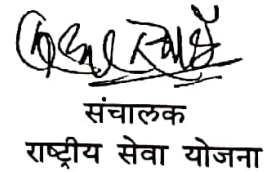 संचालक
राष्ट्रीय सेवा योजना